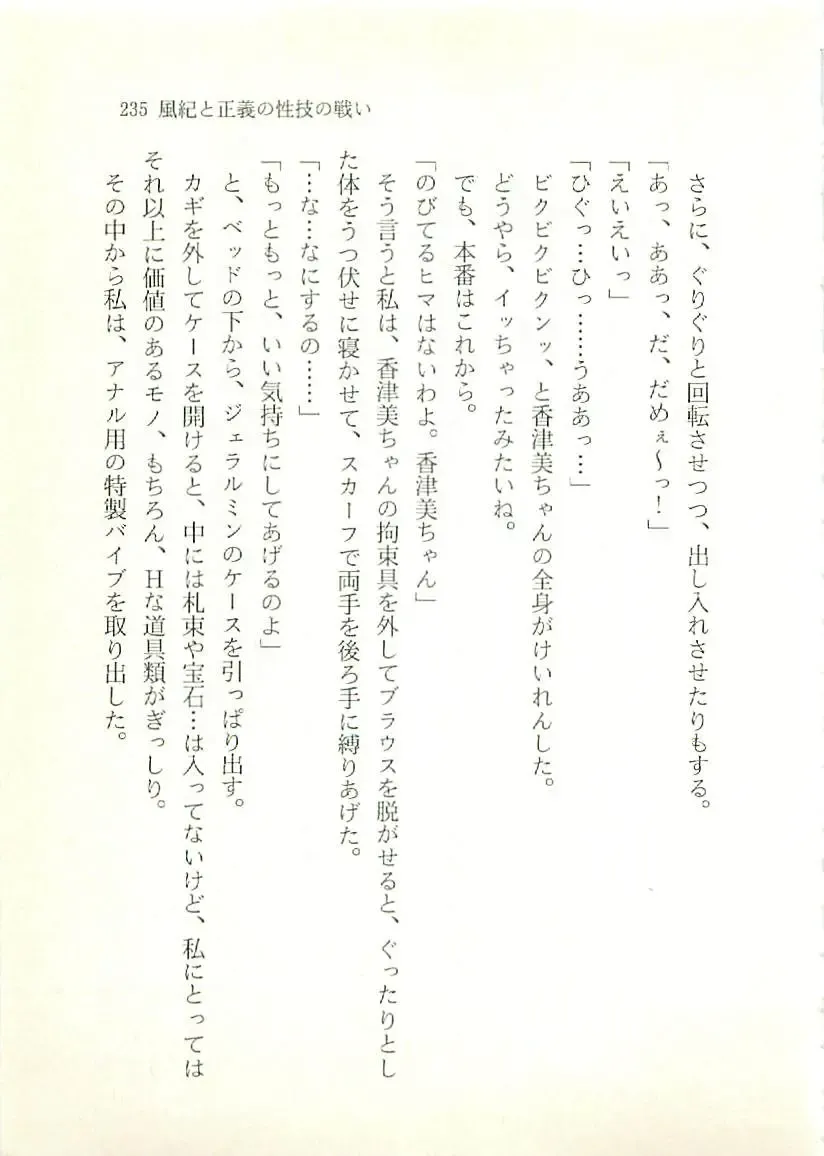 235 風紀と正義の性技の戦い
さらに、ぐりぐりと回転させつつ、出し入れさせたりもする。
「あっ、ああっ、だ、だめぇ～っ！」
「えいえいっ」
「ひぐっ…ひっ……うああっ…」
ビクビクビクンッ、と香津美ちゃんの全身がけいれんした。
どうやら、イッちゃったみたいね。
でも、本番はこれから。
「のびてるヒマはないわよ。香津美ちゃん」
そう言うと私は、香津美ちゃんの拘束具を外してブラウスを脱がせると、ぐったりとし
た体をうつ伏せに寝かせて、スカーフで両手を後ろ手に縛りあげた。
「…な…なにするの……」
「もっともっと、いい気持ちにしてあげるのよ」
と、ベッドの下から、ジェラルミンのケースを引っぱり出す。
カギを外してケースを開けると、中には札束や宝石…は入ってないけど、私にとっては
それ以上に価値のあるモノ、もちろん、Hな道具類がぎっしり。
その中から私は、アナル用の特製バイブを取り出した。